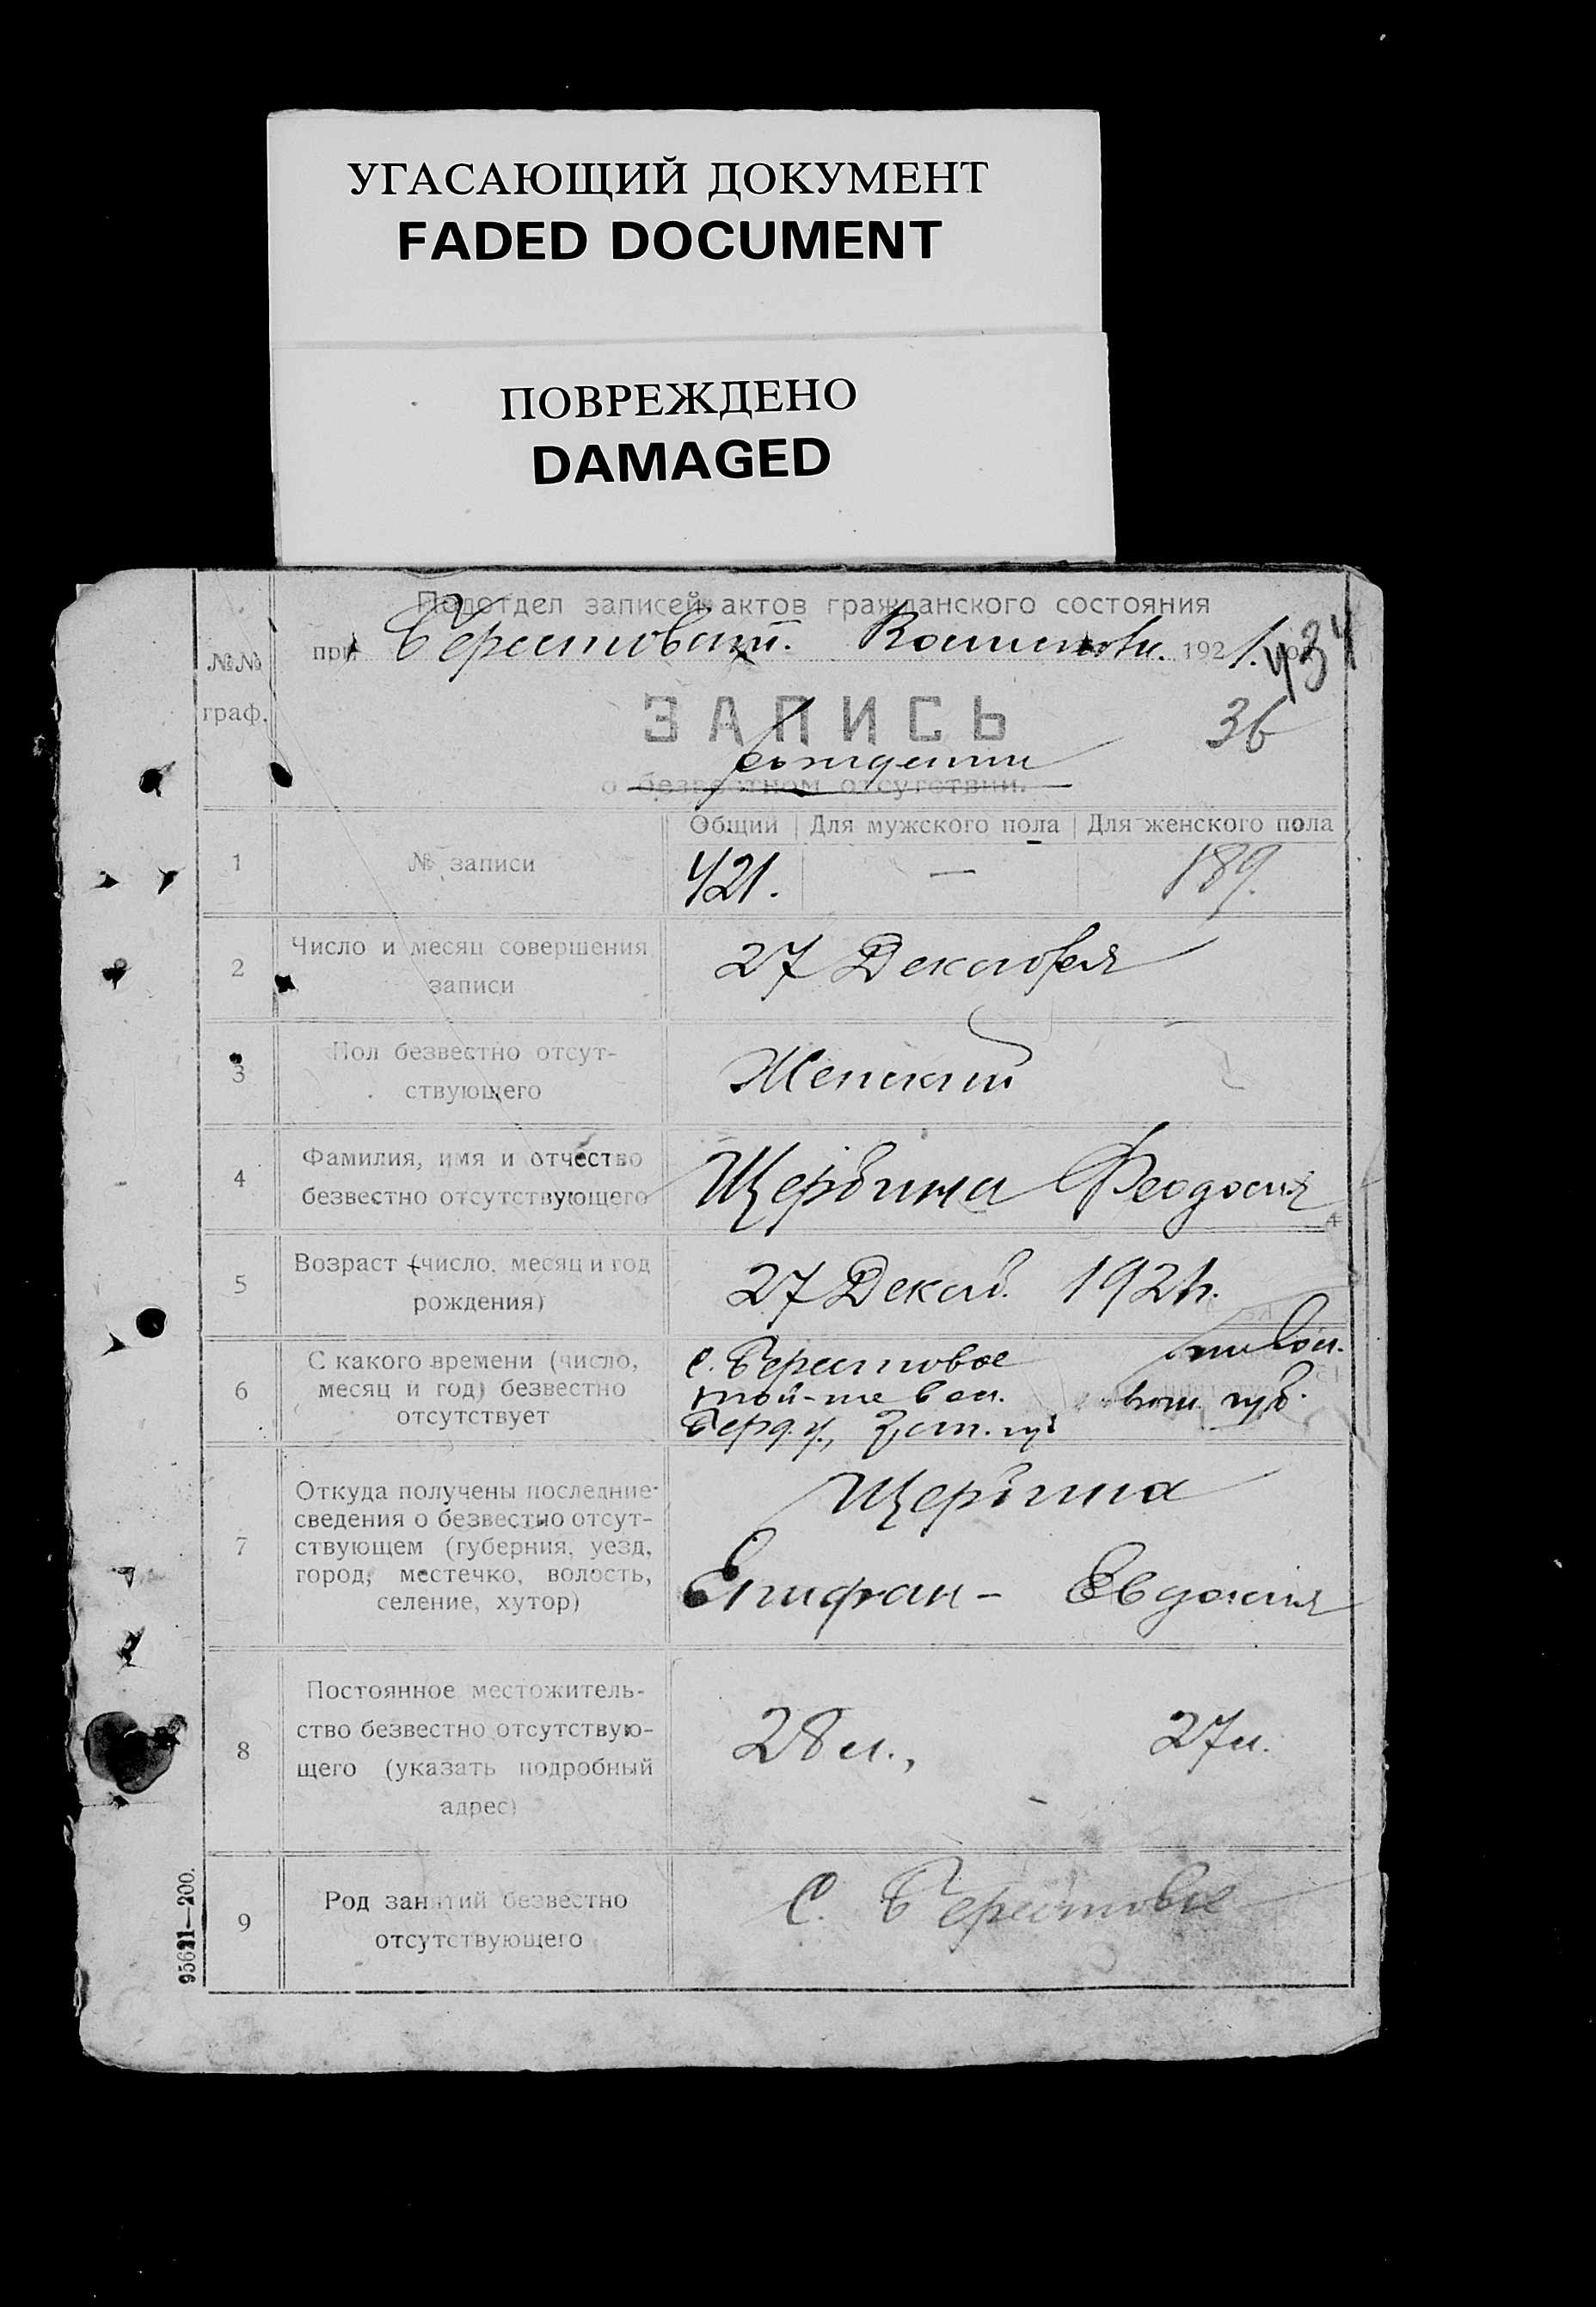 УГАСАЮЩИЙ ДОКУМЕНТ
FADED DOCUMENT
ПОВРЕЖДЕНО
DAMAGED
Подотдел записей актов гражданского состояния
при Берестоват. 192 1. 434
№№
граф.
ЗАПИСЬ 36
рождении
о безвестном отсутствии.
Общий Для мужского пола Для женского пола
1 № записи 421. — 189.
2 Число и месяц совершения
записи
27 Декабря
3 Пол безвестно отсут-
ствующего
Женский
4 Фамилия, имя и отчество
безвестно отсутствующего
Щербина Феодосия
5 Возраст (число, месяц и год
рождения)
27 Декаб. 1921г.
6 С какого времени (число,
месяц и год) безвестно
отсутствует
с. Берестовое
той-же вол.
Берд. у., губ.
7 Откуда получены последние
сведения о безвестно отсут-
ствующем (губерния, уезд,
город, местечко, волость,
селение, хутор)
Щербина
Епифан - Евдокия
8 Постоянное местожитель-
ство безвестно отсутствую-
щего (указать подробный
адрес)
28 л., 27 л.
9 Род занятий безвестно
отсутствующего
С. Берестовое
95621—200.